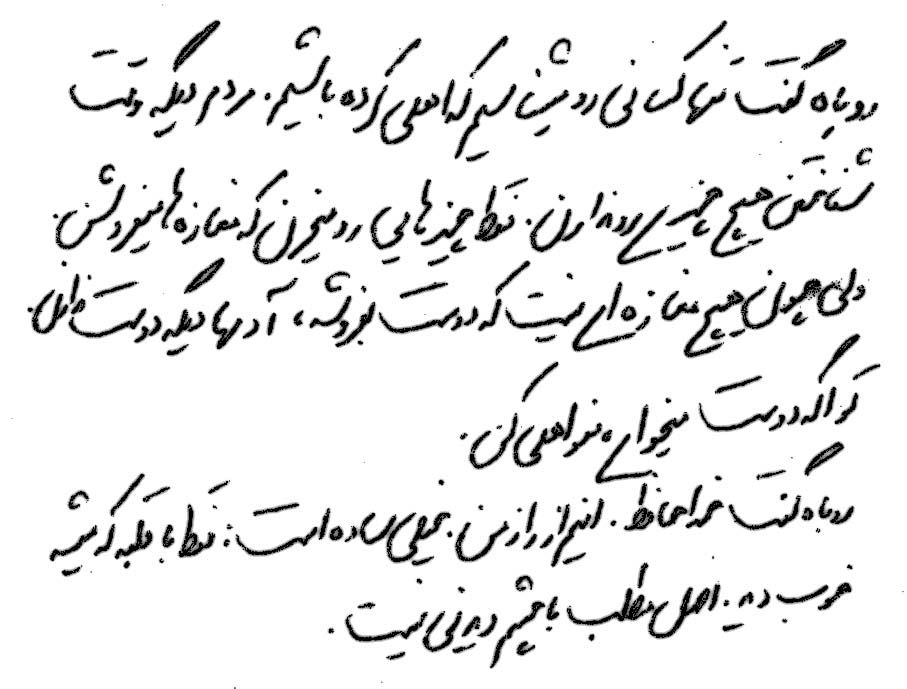 روباه گفت تنها کسانی رو میشناسیم که اهلی کرده باشیم. مردم دیگه وقت
شناختن هیچ چیزی رو ندارن. فقط چیزهایی رو میخرن که مغازه ها میفروشن.
ولی چون هیچ مغازه ای نیست که دوست بفروشه، آدمها دیگه دوست ندارن.
تو اگه دوست میخوای، منو اهلی کن.
روباه گفت خداحافظ. اینم راز من. خیلی ساده است: فقط با قلبه که میشه
خوب دید. اصل مطلب با چشم دیدنی نیست.